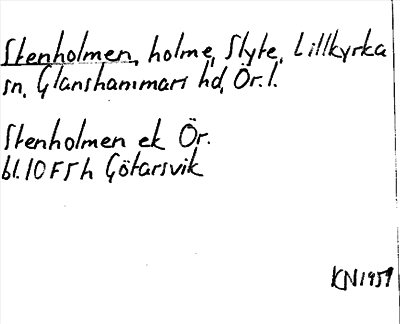 Stenholmen, holme, Slyte, Lillkyrka
sn, Glanshammars hd, Ör. l.
Stenholmen ek Ör.
bl. 10 F 5 h Götarsvik
KN 1959